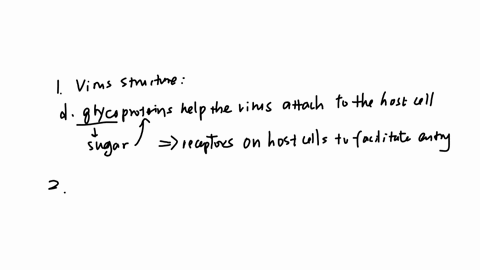 1. Virus structure:
d. glycoproteins help the virus attach to the host cell
sugar => receptors on host cells to facilitate entry
2.